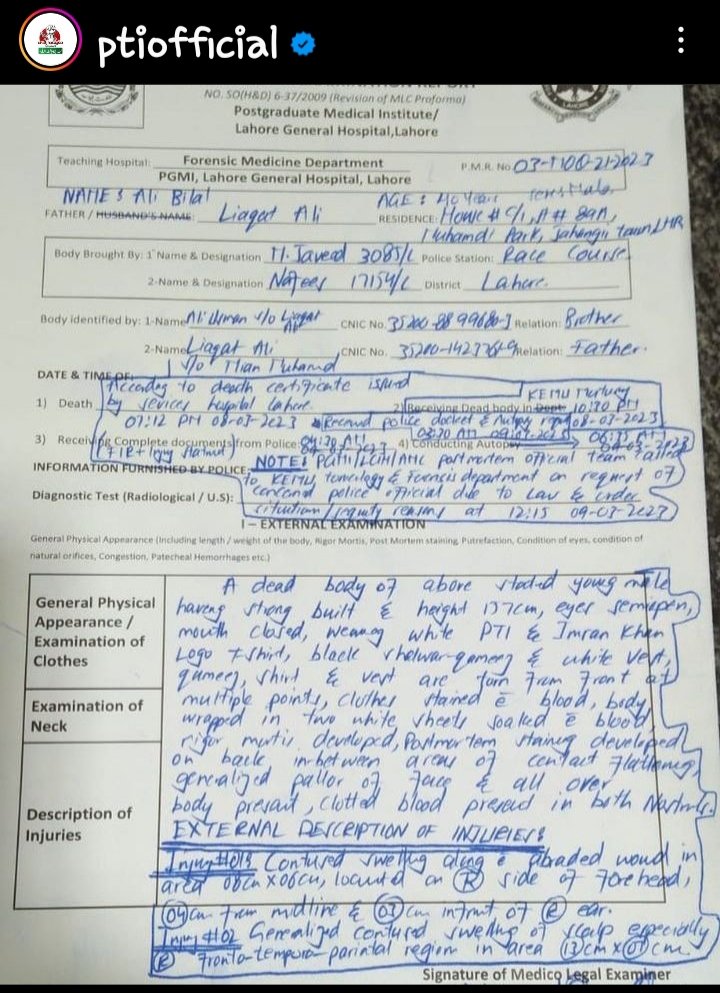 ptiofficial
NO. SO(H&D) 6-37/2009 (Revision of MLC Proforma)
Postgraduate Medical Institute/
Lahore General Hospital,Lahore
Teaching Hospital: Forensic Medicine Department
PGMI, Lahore General Hospital, Lahore
P.M.R. No 03-1100-21-2023
NAME: Ali Bilal AGE: 40 Years
FATHER / HUSBAND'S NAME: Liaqat Ali RESIDENCE: House #
Park, town LHR
Body Brought By: 1 Name & Designation M. Javeed 3085/C Police Station: Race Course
2-Name & Designation Nafees 17154/C District Lahore.
Body identified by: 1-Name Ali Usman s/o Liaqat Ali CNIC No. Relation: Brother
2-Name Liaqat Ali CNIC No. Relation: Father.
s/o Mian Muhamad
DATE & TIME OF:
According to death certificate issued
1) Death by sevices hospital lahore. 2) Receiving Dead body in Dept: 10:30 PM
KEMU
07:12 PM 08-03-2023 Received police docket & 08-03-2023
3) Receiving Complete documents from Police: 4) Conducting Autopsy
INFORMATION FURNISHED BY POLICE: NOTE: PGMI/LGH/AMC postmortem official team called
to KEMU, toxicology & Forensic department on request of
Diagnostic Test (Radiological / U.S): concend police official due to Law & order
situation/ reasons at 12:15 09-03-2023
I – EXTERNAL EXAMINATION
General Physical Appearance (Including length / weight of the body, Rigor Mortis, Post Mortem staining, Putrefaction, Condition of eyes, condition of
natural orifices, Congestion, Patecheal Hemorrhages etc.)
General Physical
Appearance /
Examination of
Clothes
Examination of
Neck
Description of
Injuries
A dead body of above stated young male
having strong built & height 157cm, eyes semiopen,
mouth closed, wearing white PTI & Imran Khan
Logo t shirt, black shalwar-qameez & white vest,
qameez, shirt & vest are torn from front at
multiple points, clothes stained c̄ blood, body
wrapped in two white sheets soaked c̄ blood
rigor mortis developed, Postmortem staing developed
on back inbetween areas of contact flattening,
generalized pallor of face & all over
body present, clotted blood present in both Nostrils.
EXTERNAL DESCRIPTION OF INJURIES
Injury #01: Contused swelling along c̄ abraded wound in
area 06cm X 06cm, located on (R) side of forehead,
04cm from midline & 03cm infront of (R) ear.
Injury #02 Generalized contused swelling of scalp especially
(R) Fronto-temporo-parietal region in area
Signature of Medico Legal Examiner